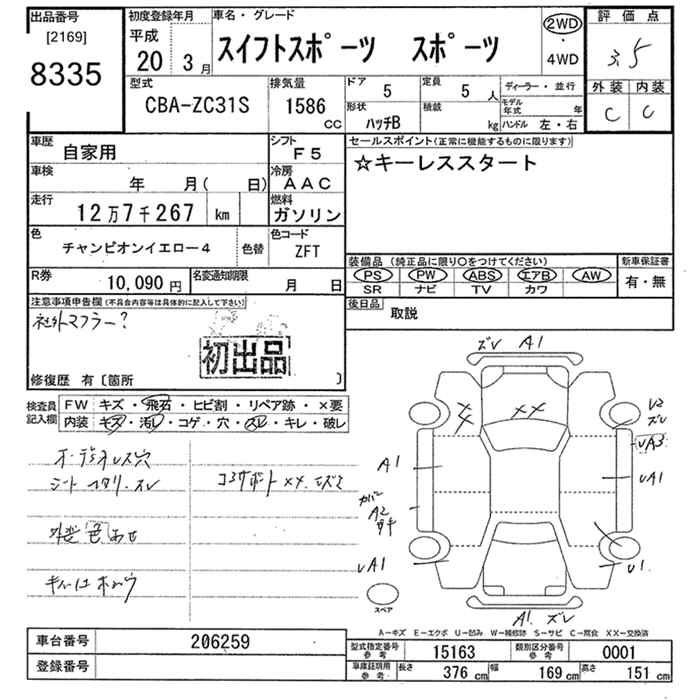 出品番号 初度登録年月 車名・グレード 評価点
[2169] 平成 2WD
8335 20年 3月 スイフトスポーツ ・ スポーツ 4WD 3.5
型式 排気量 ドア 5 定員 5人 ディーラー・並行 外装 内装
CBA-ZC31S 1586cc 形状 ハッチB 積載 kg モデル年式 年 C C
ハンドル 左・右
車歴 自家用 シフト F5 セールスポイント(正常に機能するものに限ります)
車検 年 月( 日) 冷房 AAC ☆キーレススタート
走行 12万7千267 km 燃料 ガソリン
色 チャンピオンイエロー4 色替 色コード ZFT
装備品(純正品に限り〇をつけてください) 新車保証書
R券 10,090円 名変通知期限 月 日 PS PW ABS エアB AW 有・無
SR ナビ TV カワ
注意事項申告欄(不具合内容等は具体的に記入して下さい) 後日品 取説
社外マフラー?
初出品
修復歴 有〔箇所 〕
ズレ A1
検査員記入欄 FW キズ・飛石・ヒビ割・リペア跡・×要
内装 キズ・汚レ・コゲ・穴・スレ・キレ・破レ
XX
A1 UA1
A2
UA1 U1
外装色あせ
スペア
A1 ズレ
A-キズ E-エクボ U-凹み W-補修跡 S-サビ C-腐食 XX-交換済
車台番号 206259 型式指定番号 参考 15163 類別区分番号 参考 0001
登録番号 車庫証明用 参考 長さ 376cm 幅 169cm 高さ 151cm